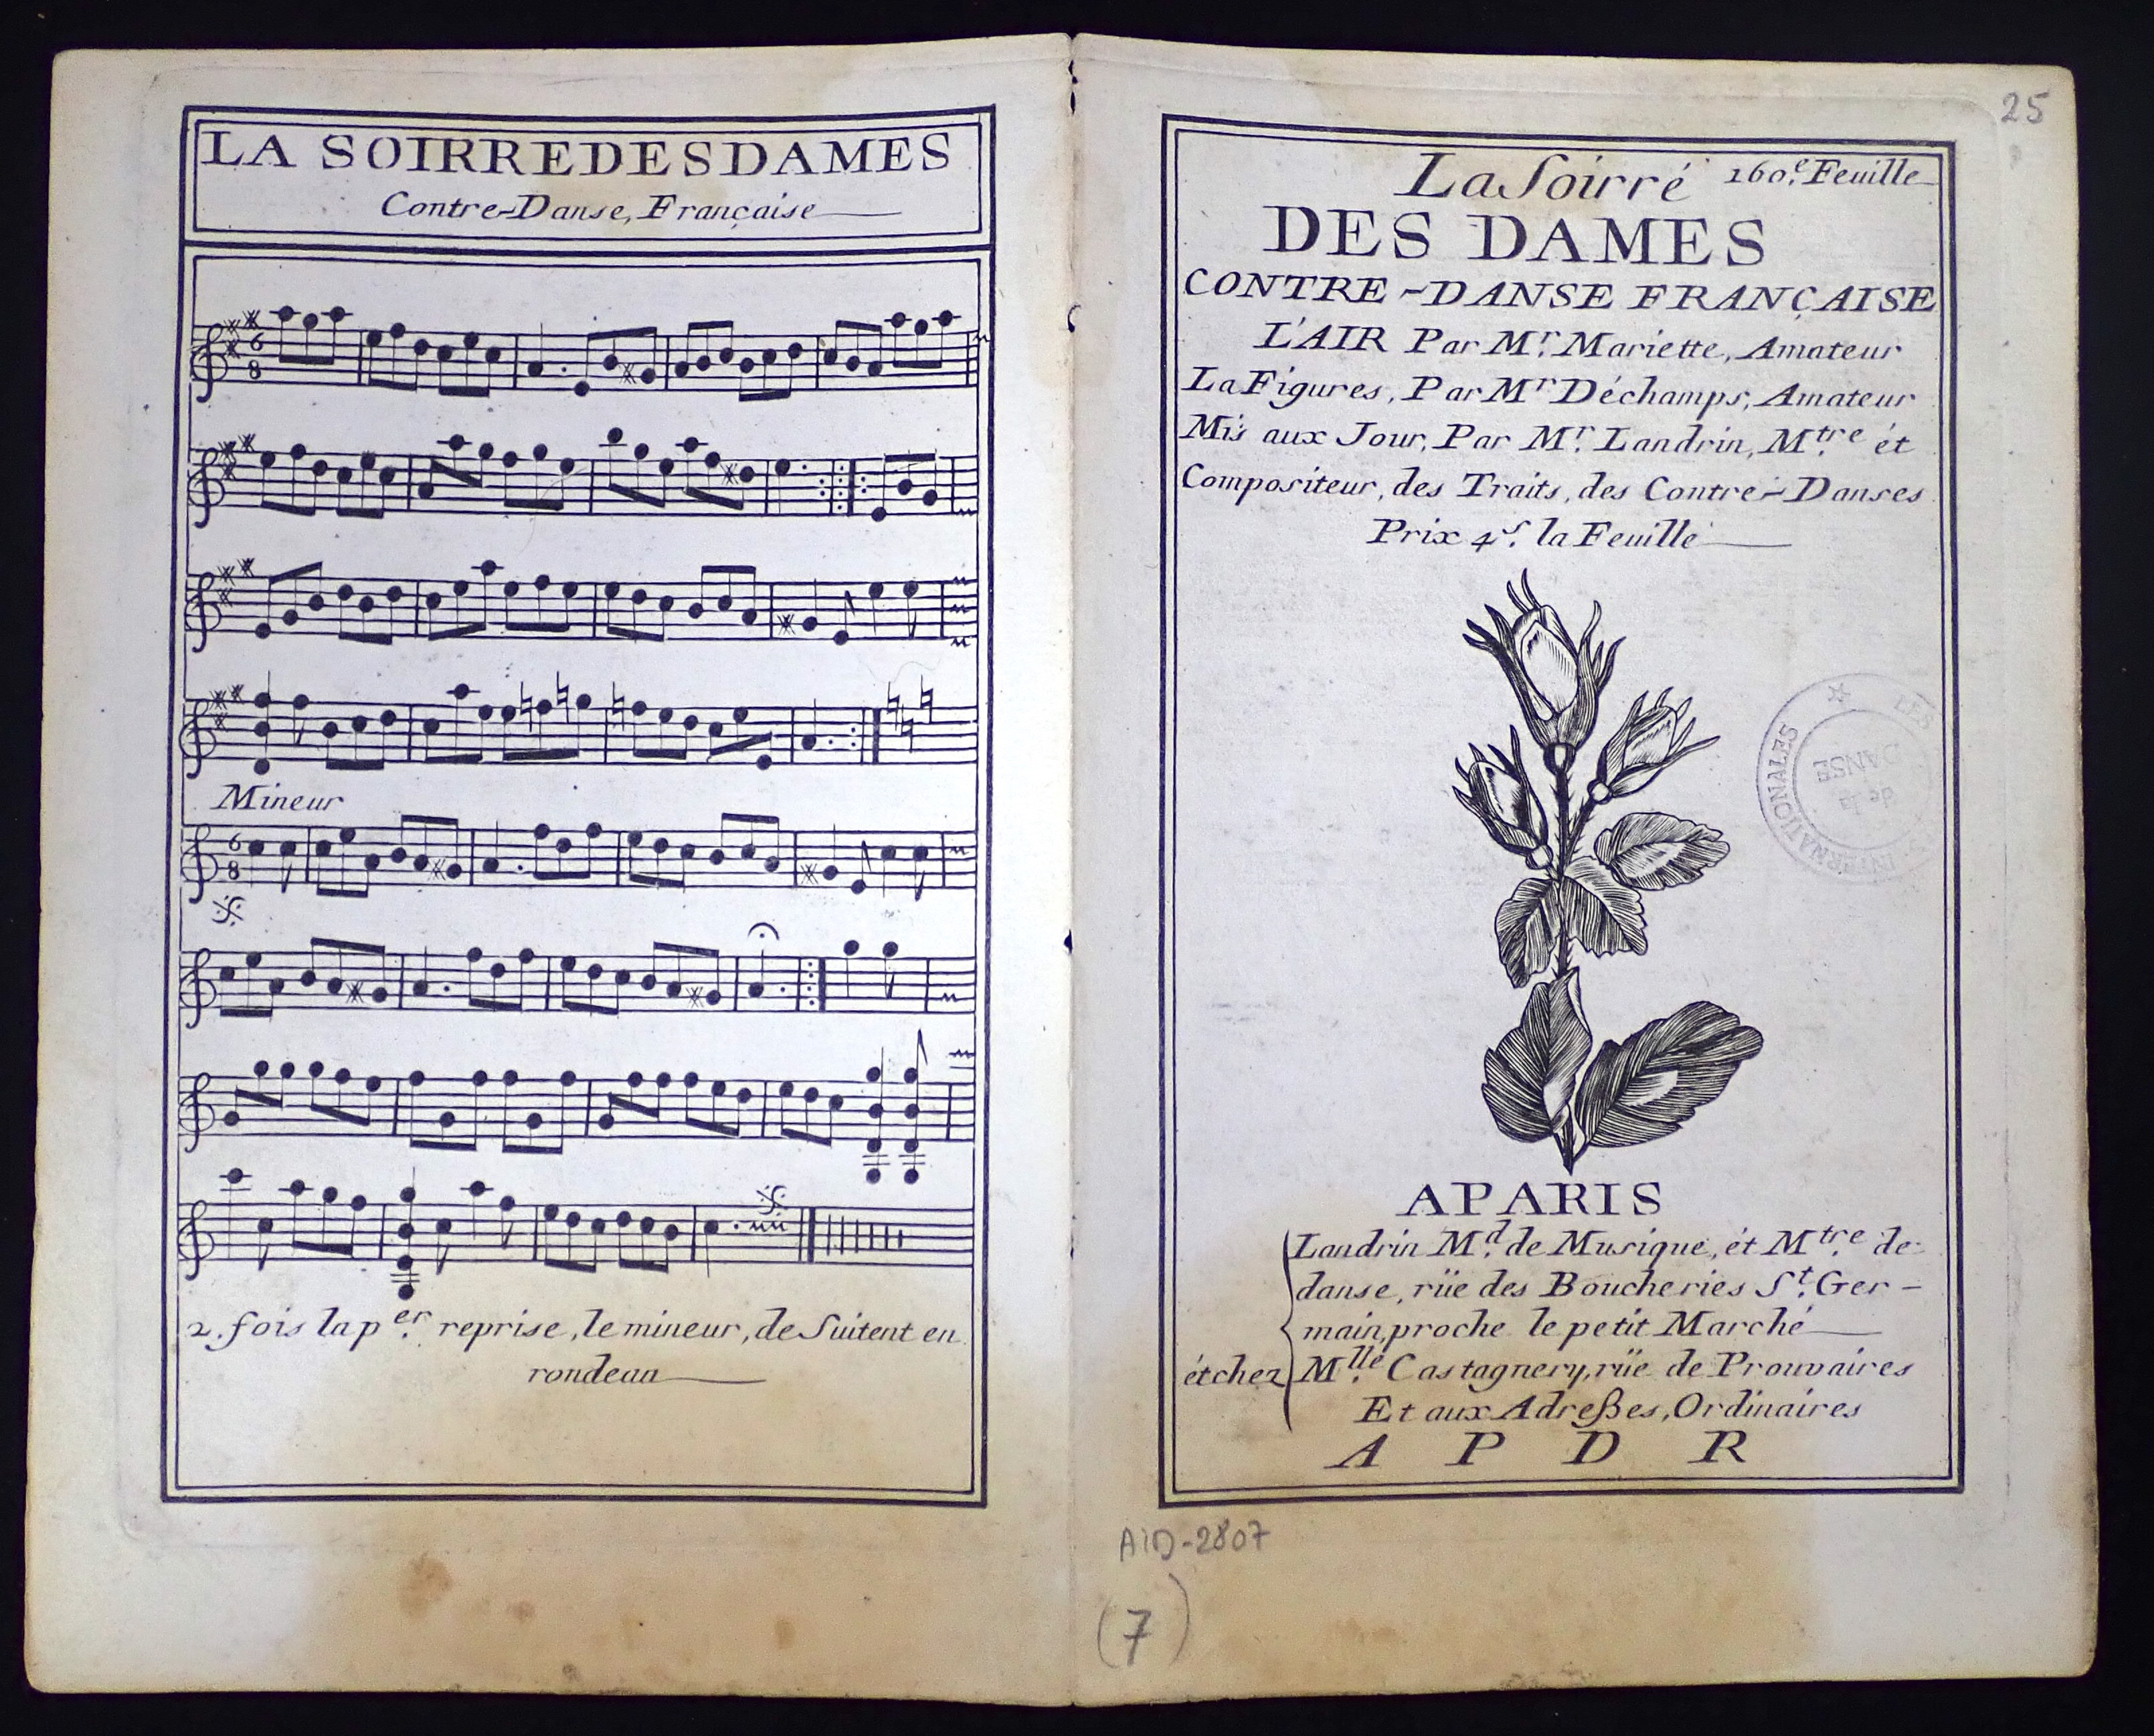 LA SOIRREDESDAMES
Contre-Danse, Française
6
8
Mineur
6
8
2. fois la p.er reprise, le mineur, de Suitent en
rondeau
25
La Soirré 160.e Feuille
DES DAMES
CONTRE-DANSE FRANÇAISE
L'AIR Par M.r Mariette, Amateur
La Figures, Par M.r Déchamps, Amateur
Mis aux Jour, Par M.r Landrin, M.tre ét
Compositeur, des Traits, des Contre-Danses
Prix 4.s la Feuille
INTERNATIONALES
de la
DANSE
LES
APARIS
Landrin M.d de Musique, ét M.tre de
danse, rüe des Boucheries S.t Ger-
main, proche le petit Marché
étchez M.lle Castagnery, rüe de Prouvaires
Et aux Adreßes, Ordinaires
A P D R
AID-2807
(7)